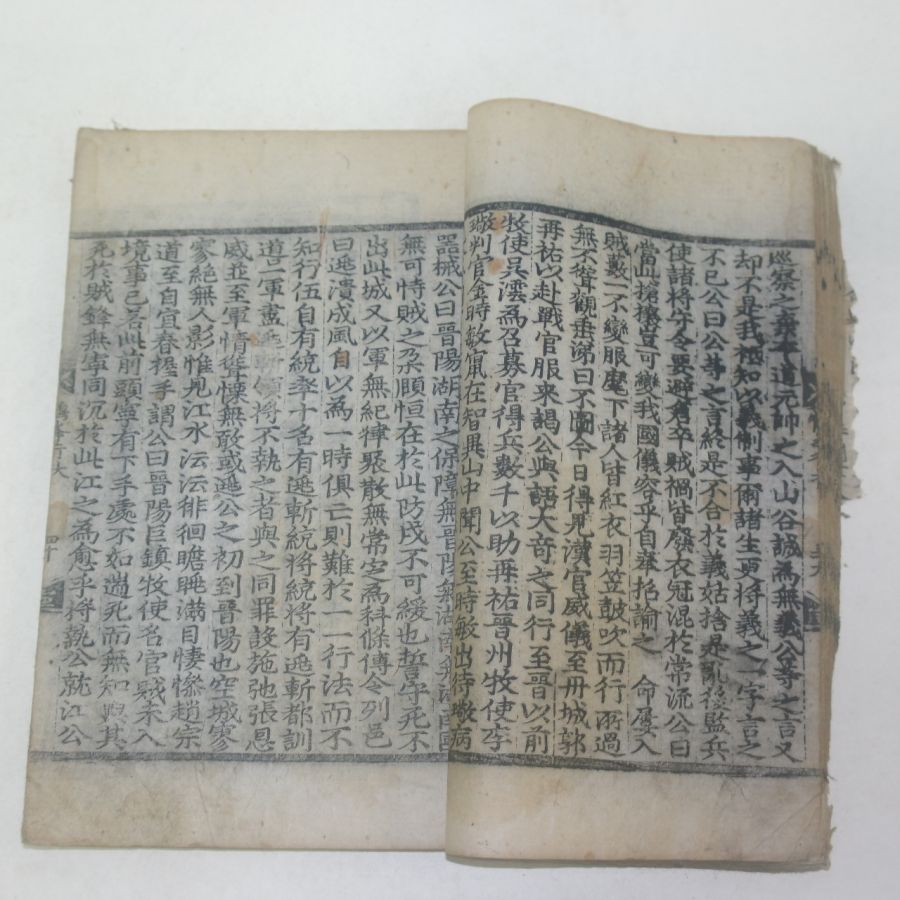 巡察之棄本道元帥之入山谷誠爲無義公等之言又
却不是我極知以義制事爾諸生更將義之一字言之
不已公曰公等之言終是不合於義姑捨是亂後監兵
使諸將守令要避者卒賊禍皆廢衣冠混於常流公曰
當此搶攘豈可變我國儀容乎自奉招諭之 命屢入
賊藪一不變服麾下諸人皆紅衣羽笠鼓吹而行所過
無不聳觀垂涕曰不圖今日得見漢官威儀至丹城郭
再祐以赴戰官服來謁公與語大奇之同行至晉以前
牧使吳澐爲召募官得兵數千以助再祐晉州牧使李
璥判官金時敏竄在智異山中聞公至時敏出待璥病
器械公曰晉陽湖南之保障無晉陽無湖南無湖南國
無可恃賊之朶頤恒在於此防戍不可緩也誓守死不
出此城又以軍無紀律聚散無常定爲科條傳令列邑
曰遁潰成風自以爲一時俱亡則難於一一行法而不
知行伍自有統率十名有遁斬統將統將有遁斬都訓
導一軍盡遁斬領將不執之者與之同罪設施弛張恩
威並至軍情聳慄無敢或遁公之初到晉陽也空城寥
寥絶無人影惟見江水沄沄徘徊瞻眺滿目悽慘趙宗
道至自宜春握手謂公曰晉陽巨鎭牧使名官賊未入
境事已若此前頭寧有下手處不如遄死而無知與其
死於賊鋒無寧同沉於此江之爲愈乎將執公就江公